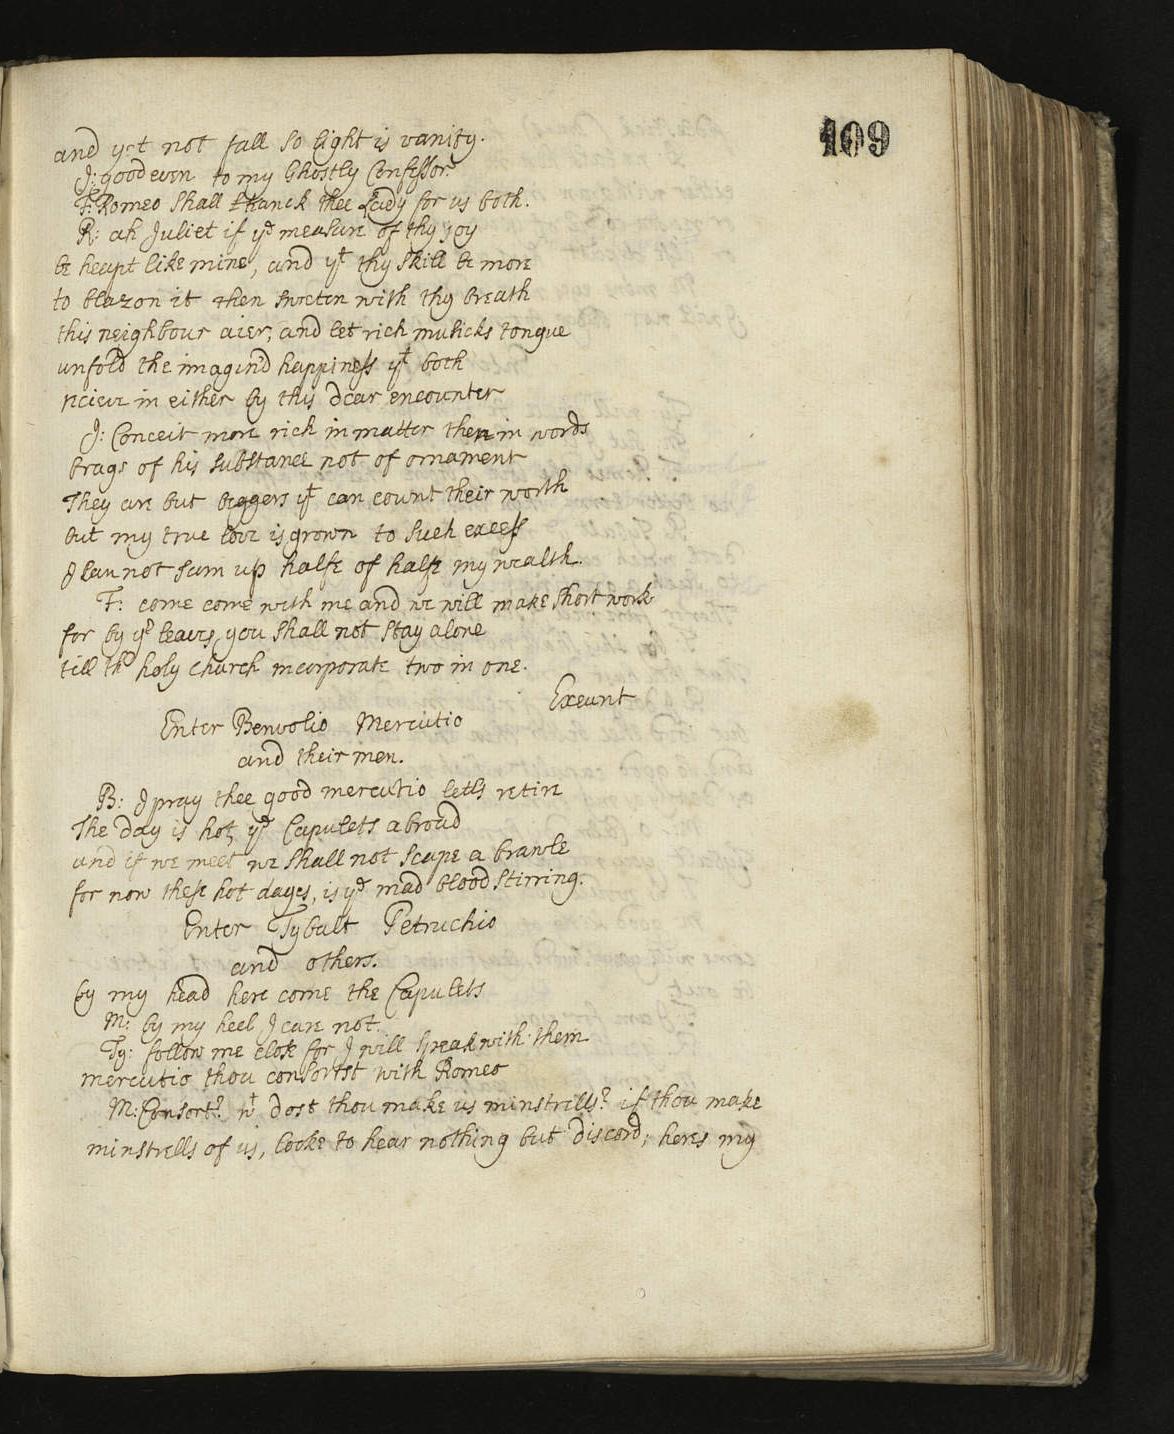 109
and yet not fall so light is vanity.
J: good even to my Ghostly Confessor.
F: Romeo shall thanck thee Lady for us both.
R: ah Juliet if yᵉ measure of thy joy
be heapt like mine, and yᵗ thy skill be more
to blazon it then sweeten with thy breath
this neighbour aier, and let rich musicks tongue
unfold the imagin'd happiness yᵗ both
receive in either by this dear encounter
J: Conceit more rich in matter then in words
brags of his substance not of ornament
They are but beggers yᵗ can count their worth
but my true love is grown to such excess
I cannot sum up halfe of halfe my wealth.
F: come come with me and we will make short work
for by yᵉ leaves, you shall not stay alone
till thᵉ holy church incorporate two in one.
Exeunt
Enter Benvolio Mercutio
and their men.
B: I pray thee good mercutio letts retire
The day is hot, yᵉ Capulets abroad
and if we meet we shall not scape a brawle
for now these hot dayes, is yᵉ mad blood stirring.
Enter Tybalt Petruchio
and others.
by my head here come the Capulets
M: by my heel I care not.
Ty: follow me close for I will speak with them
mercutio thou consortst with Romeo
M: Consort? wᵗ dost thou make us minstrells? if thou make
minstrells of us, looke to hear nothing but discord; heres my